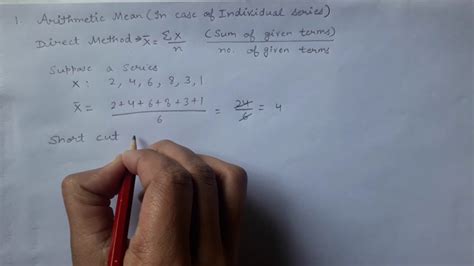 1. Arithmetic Mean (In case of Individual series)
Direct Method → x̄ = Σx/n (Sum of given terms)/no. of given terms
Suppose a Series
x : 2, 4, 6, 8, 3, 1
x̄ = 2+4+6+8+3+1/6 = 24/6 = 4
Short cut